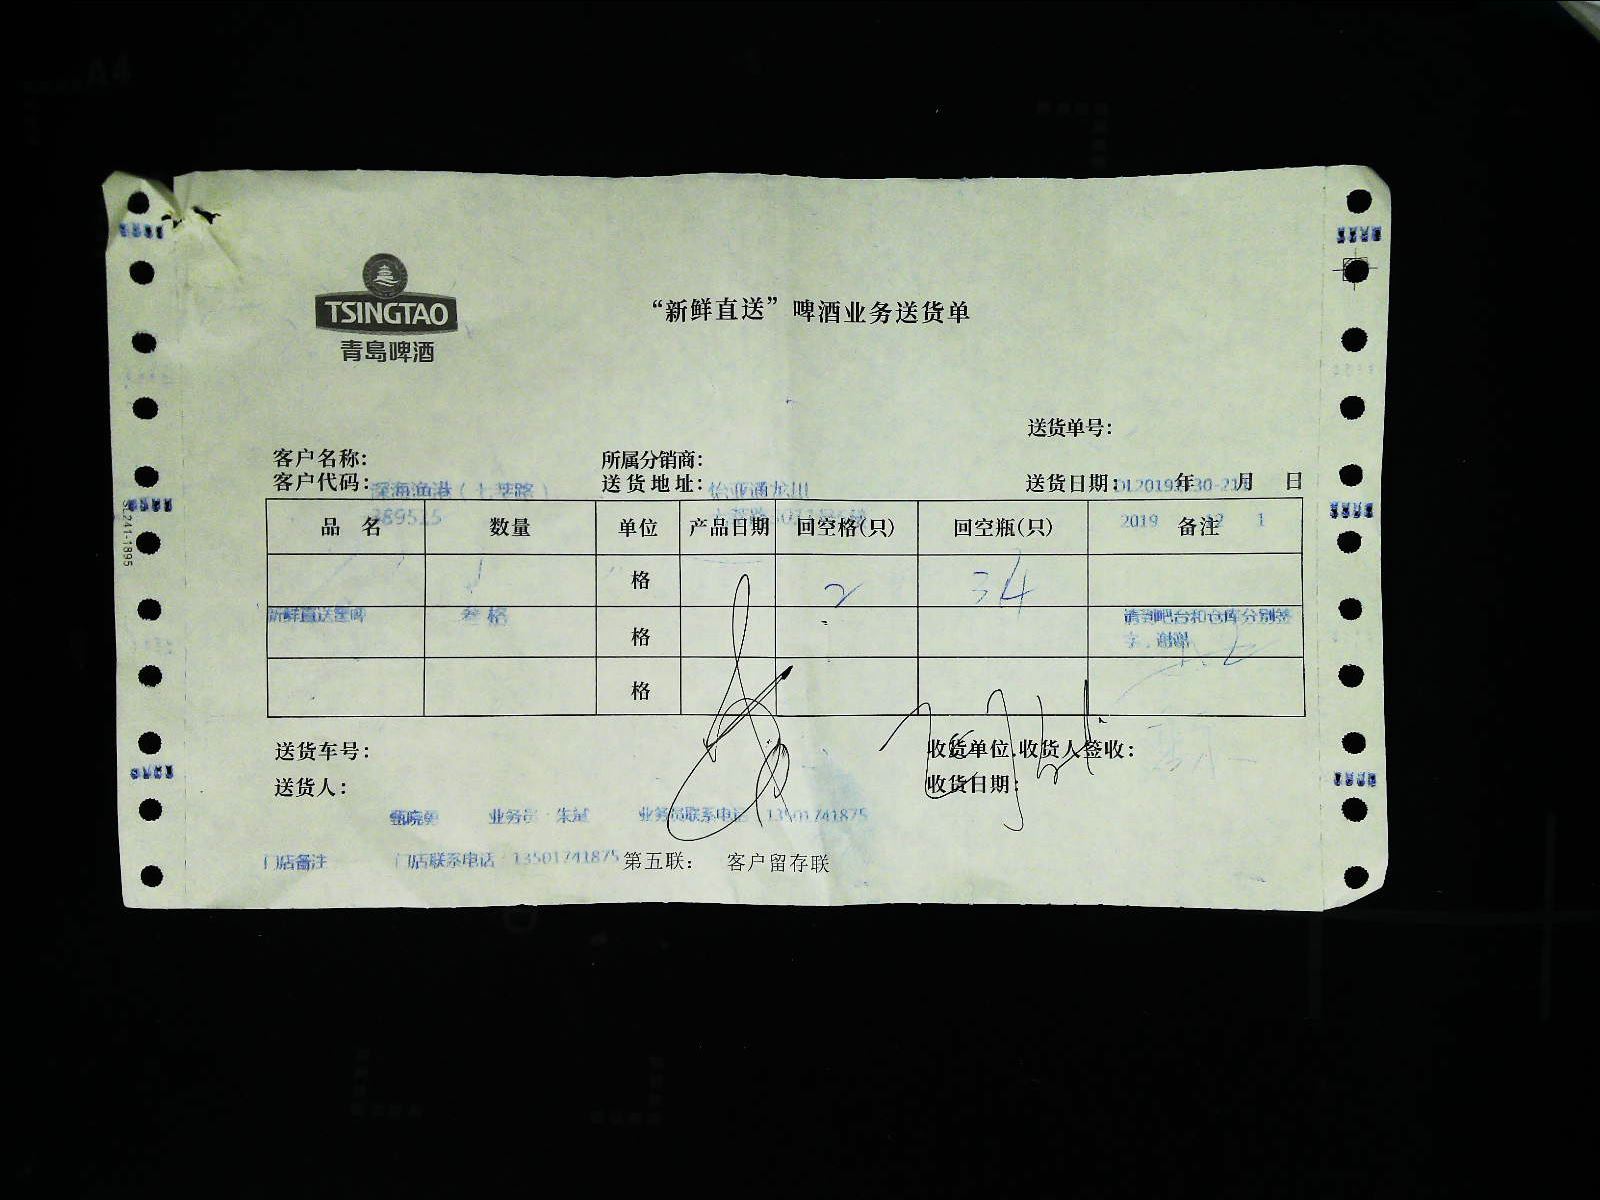 TSINGTAO
青岛啤酒
“新鲜直送”啤酒业务送货单
送货单号:
客户名称: 所属分销商:
客户代码: 送货地址: 送货日期: 年 月 日
深海渔港 怡亚通龙川
389515 2019 12 1
品 名 数量 单位 产品日期 回空格(只) 回空瓶(只) 备注
格 2 34
新鲜直送 叁格 请到吧台和仓库分别签
格 字,谢谢
格
送货车号: 收货单位.收货人签收:
送货人: 收货日期:
甄晓勇 业务员 朱斌 业务员联系电话 13501741875
门店备注 门店联系电话 13501741875 第五联: 客户留存联
SC241-1895